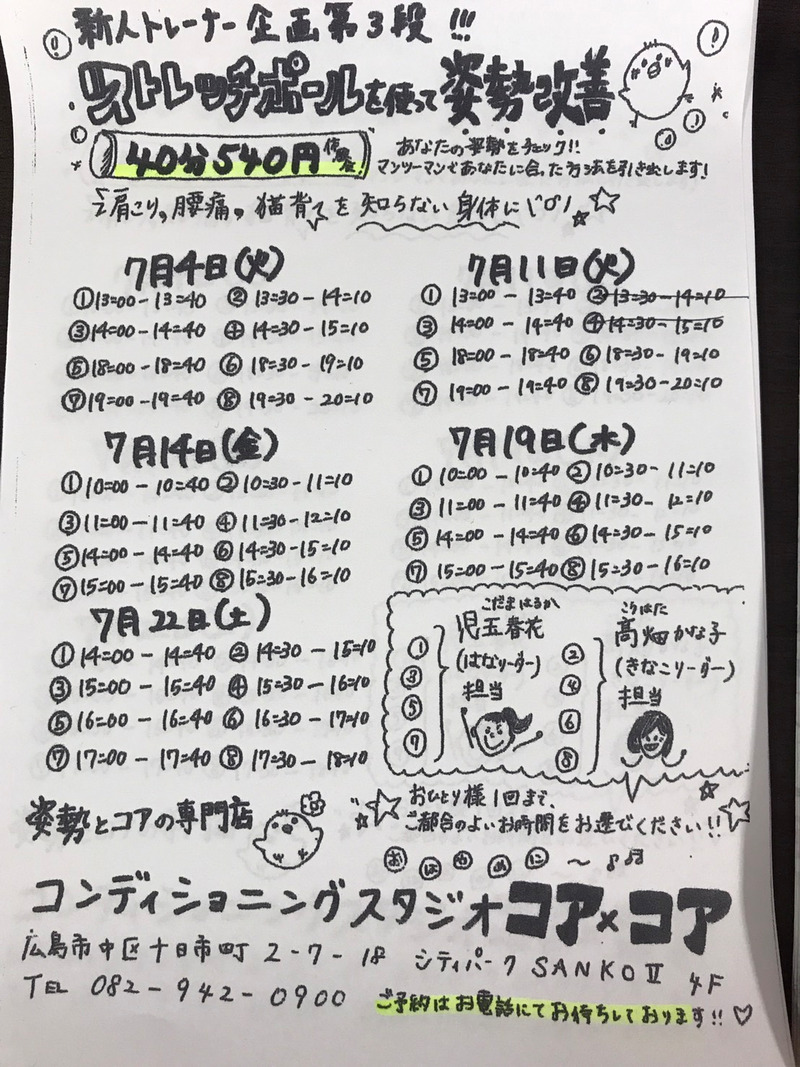 新人トレーナー企画第3段!!!
ストレッチポールを使って姿勢改善
40分540円体験会!
あなたの姿勢をチェック!!
マンツーマンであなたに合った方法を引き出します!
肩こり、腰痛、猫背を知らない身体に
7月4日(火)
①13=00-13=40 ②13=30-14=10
③14=00-14=40 ④14=30-15=10
⑤18=00-18=40 ⑥18=30-19=10
⑦19=00-19=40 ⑧19=30-20=10
7月11日(火)
①13=00-13=40 ②13=30-14=10
③14=00-14=40 ④14=30-15=10
⑤18=00-18=40 ⑥18=30-19=10
⑦19=00-19=40 ⑧19=30-20=10
7月14日(金)
①10=00-10=40 ②10=30-11=10
③11=00-11=40 ④11=30-12=10
⑤14=00-14=40 ⑥14=30-15=10
⑦15=00-15=40 ⑧15=30-16=10
7月19日(水)
①10=00-10=40 ②10=30-11=10
③11=00-11=40 ④11=30-12=10
⑤14=00-14=40 ⑥14=30-15=10
⑦15=00-15=40 ⑧15=30-16=10
7月22日(土)
①14=00-14=40 ②14=30-15=10
③15=00-15=40 ④15=30-16=10
⑤16=00-16=40 ⑥16=30-17=10
⑦17=00-17=40 ⑧17=30-18=10
①
③
⑤
⑦
こだまはるか
児玉春花
(はなリーダー)
担当
②
④
⑥
⑧
こうはた
高畑かな子
(きなこリーダー)
担当
おひとり様1回まで、
ご都合のよいお時間をお選びください!!
おはやめに〜♪♫
姿勢とコアの専門店
コンディショニングスタジオコア×コア
広島市中区十日市町2-7-18 シティパークSANKOⅡ 4F
TEL 082-942-0900
ご予約はお電話にてお待ちしております!!♡